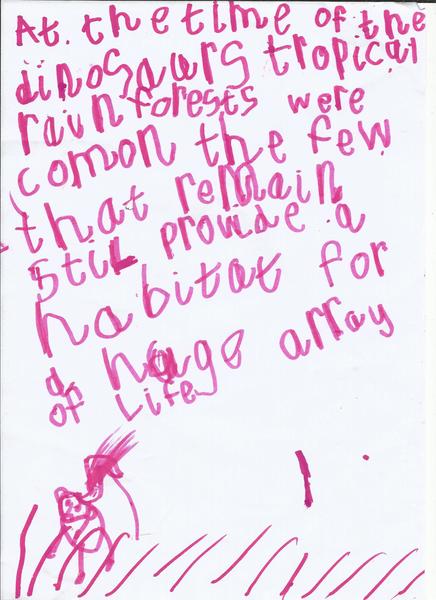 At. the time of the
dinosaurs tropical
rainforests were
comon the few
that remain
still provide a
habitat for
a huge array
of Life